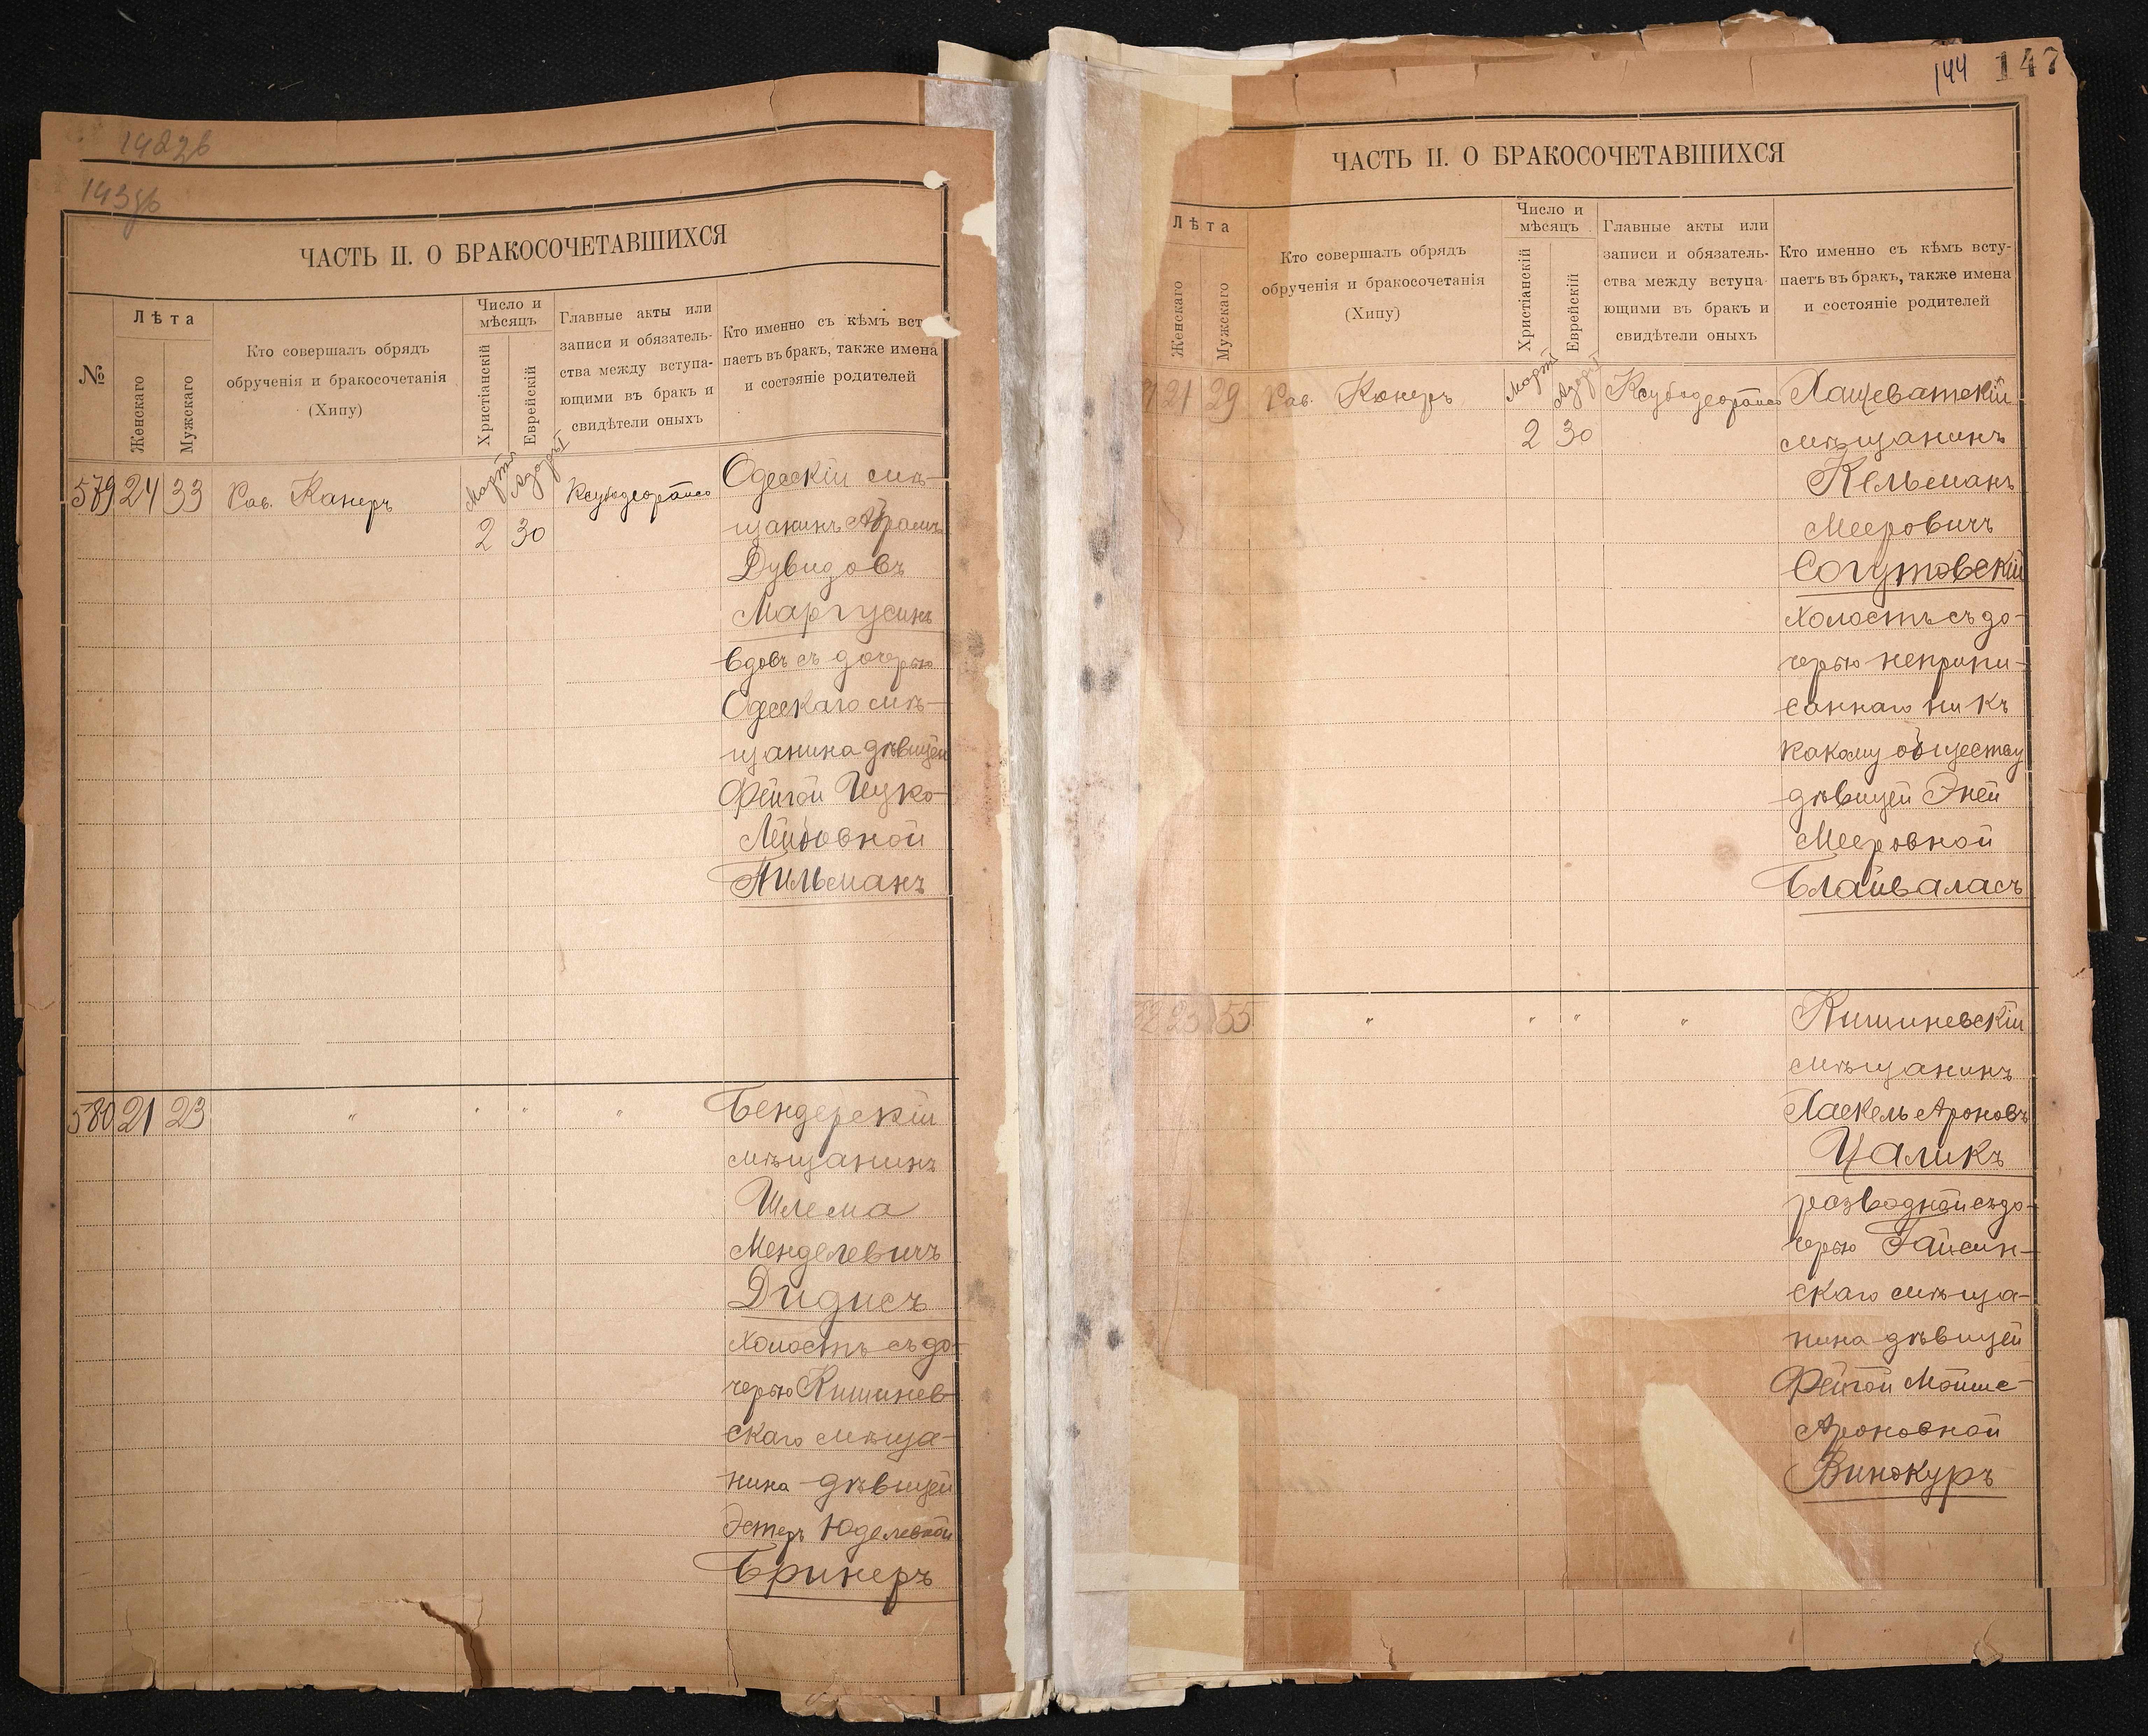 142зб
143зб
ЧАСТЬ II. О БРАКОСОЧЕТАВШИХСЯ
№
Лѣта
Женскаго
Мужскаго
Кто совершалъ обрядъ
обрученія и бракосочетанія
(Хипу)
Число и
мѣсяцъ
Христіанскій
Еврейскій
Главные акты или
записи и обязатель-
ства между вступа-
ющими въ бракъ и
свидѣтели оныхъ
Кто именно съ кѣмъ вст
паетъ въ бракъ, также имена
и состояніе родителей
579 24 33 Рав. Канеръ Мартъ Адоръ I
2 30
Одесскій мѣ-
щанинъ Абрамъ
Дувидовъ
Маргусинъ
вдовъ съ дочерью
Одесскаго мѣ-
щанина дѣвицей
Фейгой Цуко-
Лейбовной
Гильманъ
580 21 23 " " " "
Бендерскій
мѣщанинъ
Шлема
Менделевичъ
Дидисъ
холостъ съ до-
черью Кишинев-
скаго мѣща-
нина дѣвицей
Эстеръ Юделевной
Бринеръ
144 147
ЧАСТЬ II. О БРАКОСОЧЕТАВШИХСЯ
Лѣта
Женскаго
Мужскаго
Кто совершалъ обрядъ
обрученія и бракосочетанія
(Хипу)
Число и
мѣсяцъ
Христіанскій
Еврейскій
Главные акты или
записи и обязатель-
ства между вступа-
ющими въ бракъ и
свидѣтели оныхъ
Кто именно съ кѣмъ всту-
паетъ въ бракъ, также имена
и состояніе родителей
21 29 Рав. Канеръ Мартъ Адоръ I
2 30
Хащеватскій
мѣщанинъ
Кельманъ
Мееровичъ
Согутовскій
холостъ съ до-
черью неприпи-
саннаго ни къ
какому обществу
дѣвицейЭней
Мееровной
Блайвалась
82 23 55 " " " "
Кишиневскій
мѣщанинъ
Хаскель Ароновъ
Цаликъ
разводной съ до-
черью Гайсин-
скаго мѣща-
нина дѣвицей
Фейгой Мойше-
Ароновной
Винокуръ